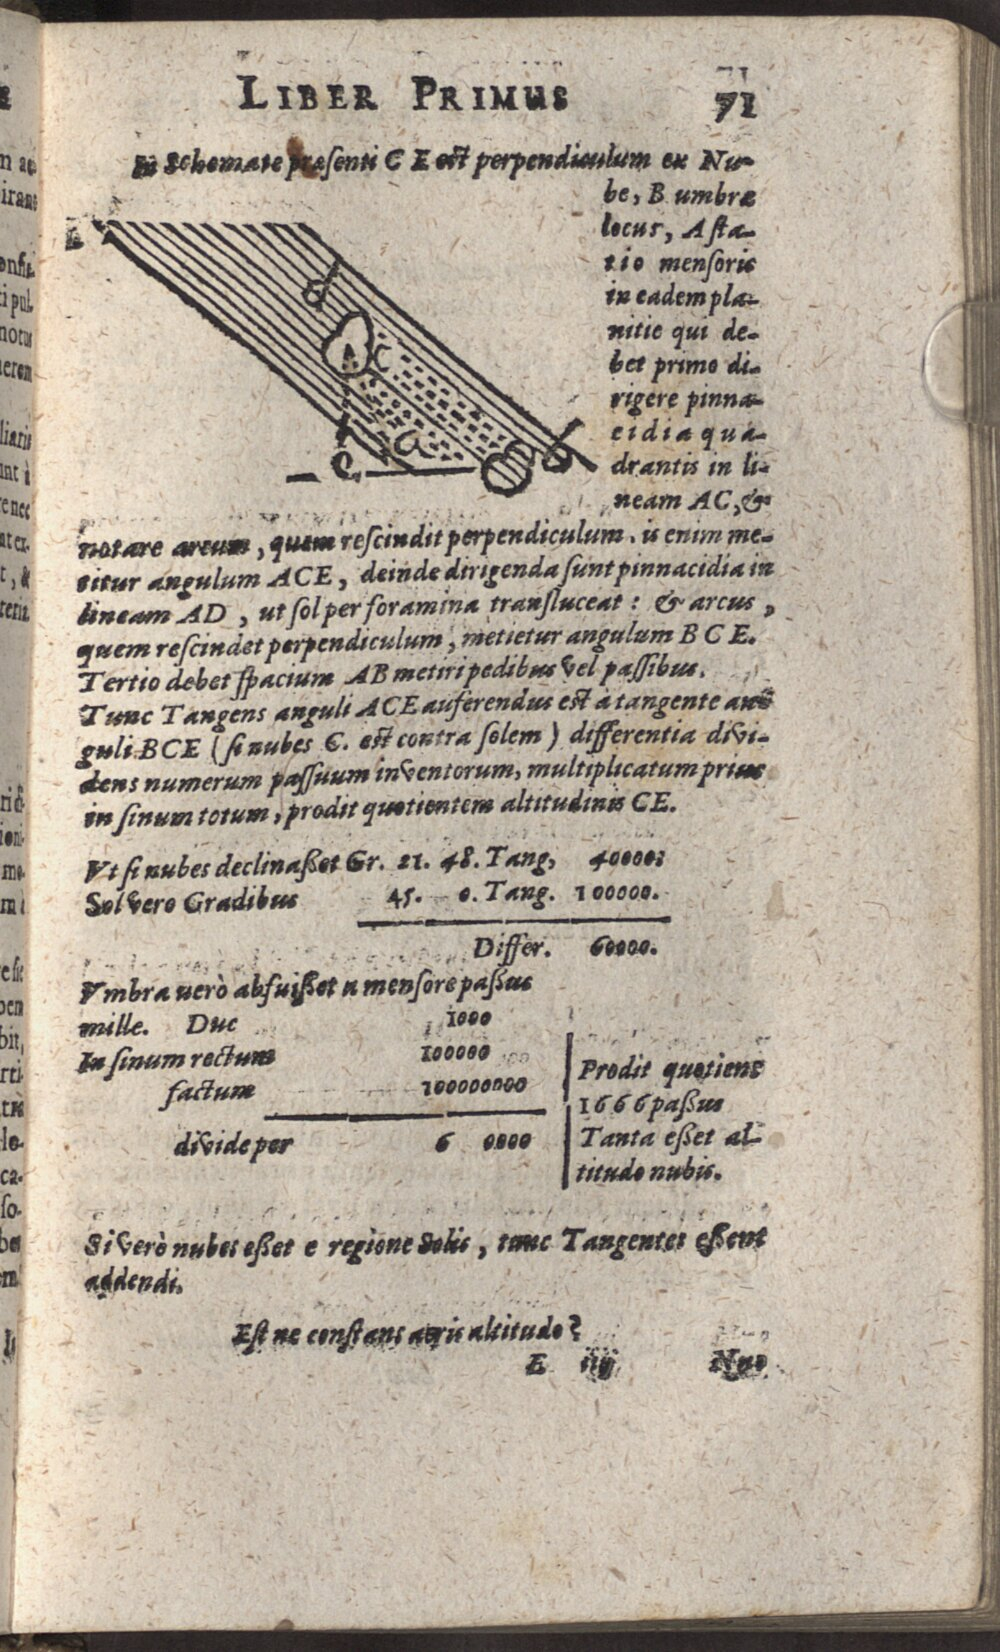 LIBER PRIMUS 71
In Schemate præsenti C E est perpendiculum ex Nu-
be, B umbræ
locus, A sta-
tio mensoris
in eadem pla-
nitie qui de-
bet primo di-
rigere pinna-
cidia qua-
drantis in li-
neam AC, &
notare arcum, quem rescindit perpendiculum. is enim me-
titur angulum ACE, deinde dirigenda sunt pinnacidia in
lineam AD, ut sol per foramina transluceat: & arcus,
quem rescindet perpendiculum, metietur angulum BCE.
Tertio debet spacium AB metiri pedibus vel passibus.
Tunc Tangens anguli ACE auferendus est à tangente an-
guli BCE (si nubes C. est contra solem) differentia divi-
dens numerum passuum inventorum, multiplicatum prius
in sinum totum, prodit quotientem altitudinis CE.
Vt si nubes declinaßet Gr. 21. 48. Tang, 40000:
Sol vero Gradibus 45. 0. Tang. 100000.
Differ. 60000.
Vmbra verò abfuißet a mensore paßus
mille. Duc 1000
In sinum rectum 100000
factum 100000000
divide per 6 0000
Prodit quotiens
1666 paßus
Tanta eßet al-
titudo nubis.
Si verò nubes eßet e regione Solis, tunc Tangentes eßent
addendi.
Est ne constans aeris altitudo?
E iiij Nus
d
C
a
e